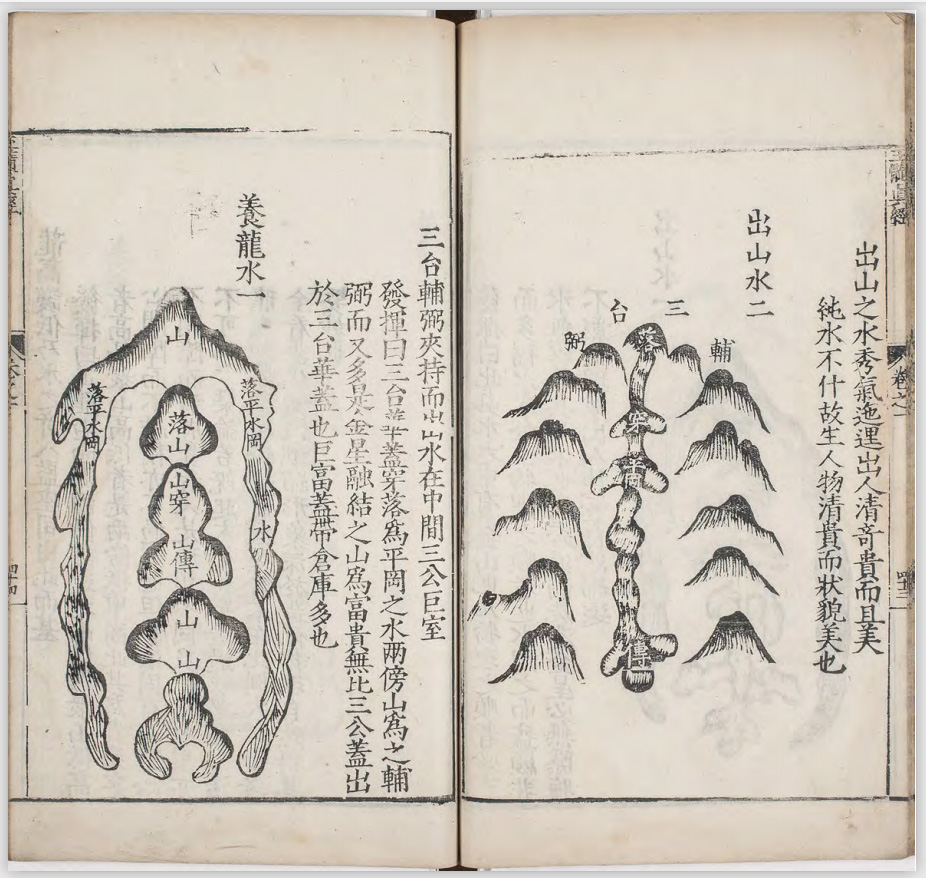 出山之水秀氣迤邐出人清奇貴而且美
純水不什故生人物清貴而狀貌美也
出山水二
三台
輔
弼
穿
傳
三台輔弼夾持而出水在中間三公巨室
發揮曰三台華蓋穿落爲平岡之水兩傍山爲之輔
弼而又多是金星融結之山爲富貴無比三公蓋出
於三台華蓋也巨富蓋帶倉庫多也
養龍水一
山
落平水岡
落平水岡
落山
山穿
山傳
水
山
山